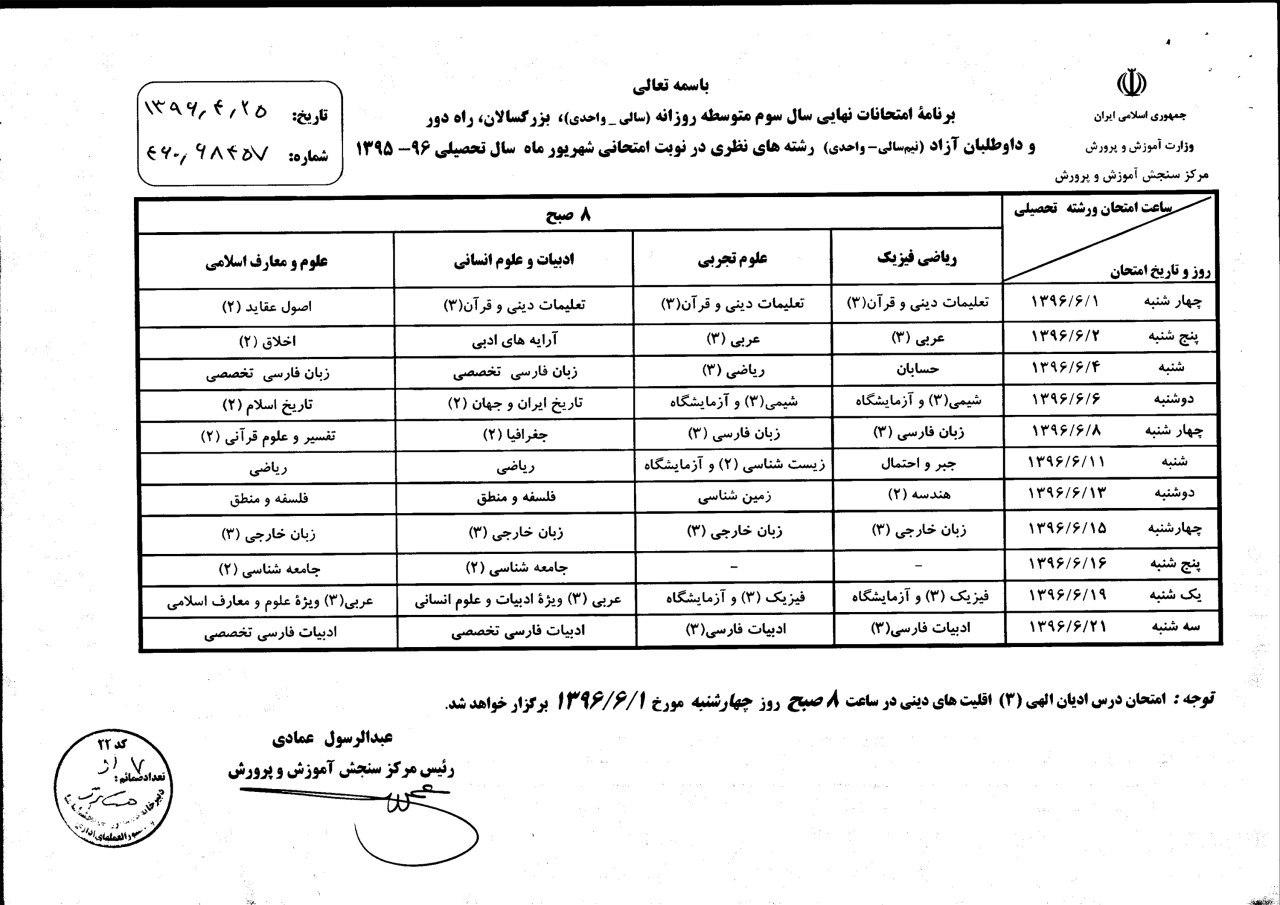 باسمه تعالی
برنامهٔ امتحانات نهایی سال سوم متوسطه روزانه (سالی _ واحدی)، بزرگسالان، راه دور
و داوطلبان آزاد (نیم‌سالی- واحدی) رشته های نظری در نوبت امتحانی شهریور ماه سال تحصیلی ۹۶- ۱۳۹۵
جمهوری اسلامی ایران
وزارت آموزش و پرورش
مرکز سنجش آموزش و پرورش
تاریخ: ۱۳۹۶,۴,۲۵
شماره:
ساعت امتحان ورشته تحصیلی
روز و تاریخ امتحان
۸ صبح
ریاضی فیزیک علوم تجربی ادبیات و علوم انسانی علوم و معارف اسلامی
چهار شنبه ۱۳۹۶/۶/۱ تعلیمات دینی و قرآن(۳) تعلیمات دینی و قرآن(۳) تعلیمات دینی و قرآن(۳) اصول عقاید (۲)
پنج شنبه ۱۳۹۶/۶/۲ عربی (۳) عربی (۳) آرایه های ادبی اخلاق (۲)
شنبه ۱۳۹۶/۶/۴ حسابان ریاضی (۳) زبان فارسی تخصصی زبان فارسی تخصصی
دوشنبه ۱۳۹۶/۶/۶ شیمی(۳) و آزمایشگاه شیمی(۳) و آزمایشگاه تاریخ ایران و جهان (۲) تاریخ اسلام (۲)
چهار شنبه ۱۳۹۶/۶/۸ زبان فارسی (۳) زبان فارسی (۳) جغرافیا (۲) تفسیر و علوم قرآنی (۲)
شنبه ۱۳۹۶/۶/۱۱ جبر و احتمال زیست شناسی (۲) و آزمایشگاه ریاضی ریاضی
دوشنبه ۱۳۹۶/۶/۱۳ هندسه (۲) زمین شناسی فلسفه و منطق فلسفه و منطق
چهارشنبه ۱۳۹۶/۶/۱۵ زبان خارجی (۳) زبان خارجی (۳) زبان خارجی (۳) زبان خارجی (۳)
پنج شنبه ۱۳۹۶/۶/۱۶ - - جامعه شناسی (۲) جامعه شناسی (۲)
یک شنبه ۱۳۹۶/۶/۱۹ فیزیک (۳) و آزمایشگاه فیزیک (۳) و آزمایشگاه عربی (۳) ویژهٔ ادبیات و علوم انسانی عربی(۳) ویژهٔ علوم و معارف اسلامی
سه شنبه ۱۳۹۶/۶/۲۱ ادبیات فارسی(۳) ادبیات فارسی(۳) ادبیات فارسی تخصصی ادبیات فارسی تخصصی
توجه : امتحان درس ادیان الهی (۳) اقلیت های دینی در ساعت ۸ صبح روز چهارشنبه مورخ ۱۳۹۶/۶/۱ برگزار خواهد شد.
عبدالرسول عمادی
رئیس مرکز سنجش آموزش و پرورش
کد ۲۲
تعدادضمائم: